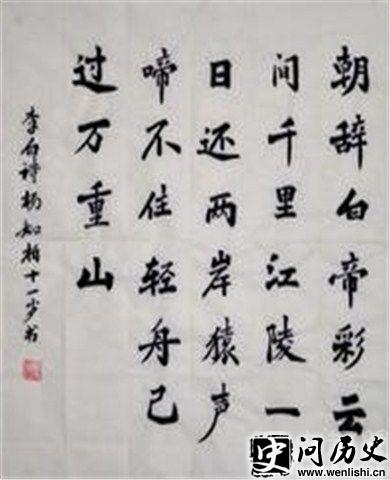 朝辞白帝彩云
间千里江陵一
日还两岸猿声
啼不住轻舟已
过万重山
李白诗杨知柏十一岁书
问历史
www.wenlishi.cn